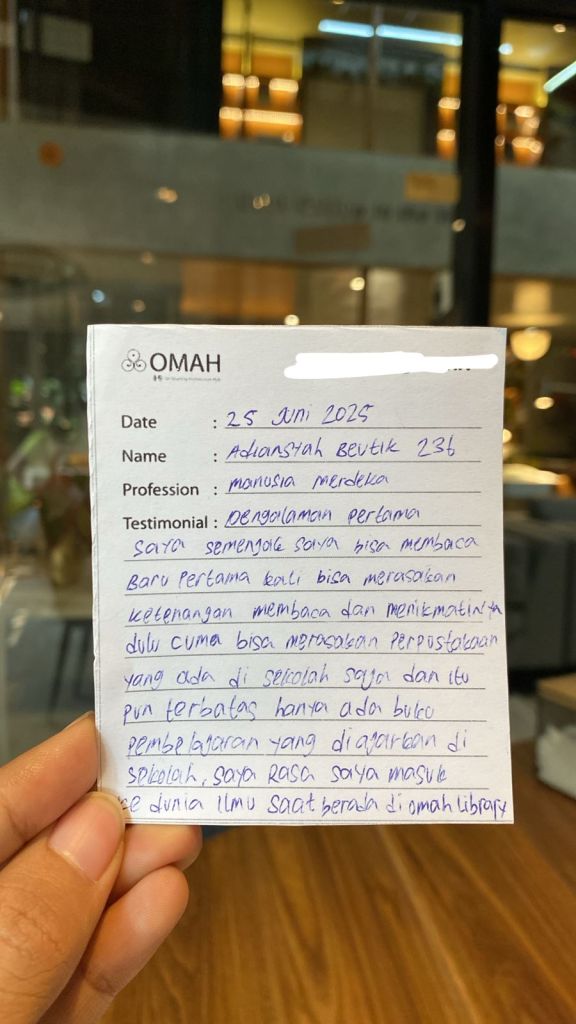 OMAH
Date : 25 Juni 2025
Name : Adiansyah Beutik 236
Profession : manusia merdeka
Testimonial : Pengalaman pertama
saya semenjak saya bisa membaca
Baru Pertama kali bisa merasakan
ketenangan membaca dan menikmatinya
dulu cuma bisa merasakan Perpustakaan
yang ada di sekolah saja dan itu
pun terbatas hanya ada buku
pembelajaran yang diajarkan di
sekolah, saya Rasa saya masuk
ke dunia ilmu saat berada di omah library